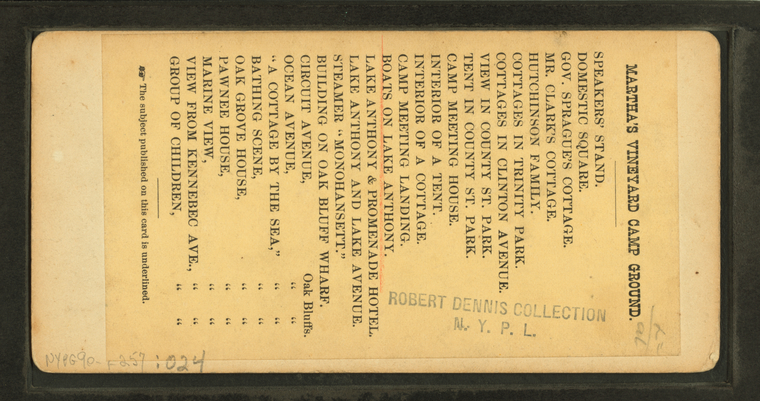 MARTHA'S VINEYARD CAMP GROUND.
SPEAKERS' STAND.
DOMESTIC SQUARE.
GOV. SPRAGUE'S COTTAGE.
MR. CLARK'S COTTAGE.
HUTCHINSON FAMILY.
COTTAGES IN TRINITY PARK.
COTTAGES IN CLINTON AVENUE.
VIEW IN COUNTY ST. PARK.
TENT IN COUNTY ST. PARK.
CAMP MEETING HOUSE.
INTERIOR OF A TENT.
INTERIOR OF A COTTAGE.
CAMP MEETING LANDING.
BOATS ON LAKE ANTHONY.
LAKE ANTHONY & PROMENADE HOTEL.
LAKE ANTHONY AND LAKE AVENUE.
STEAMER "MONOHANSETT."
BUILDING ON OAK BLUFF WHARF.
CIRCUIT AVENUE, Oak Bluffs.
OCEAN AVENUE, " "
"A COTTAGE BY THE SEA," " "
BATHING SCENE, " "
OAK GROVE HOUSE, " "
PAWNEE HOUSE, " "
MARINE VIEW, " "
VIEW FROM KENNEBEC AVE., " "
GROUP OF CHILDREN, " "
☞ The subject published on this card is underlined.
ROBERT DENNIS COLLECTION
N. Y. P. L.
NYPG90-F257:024